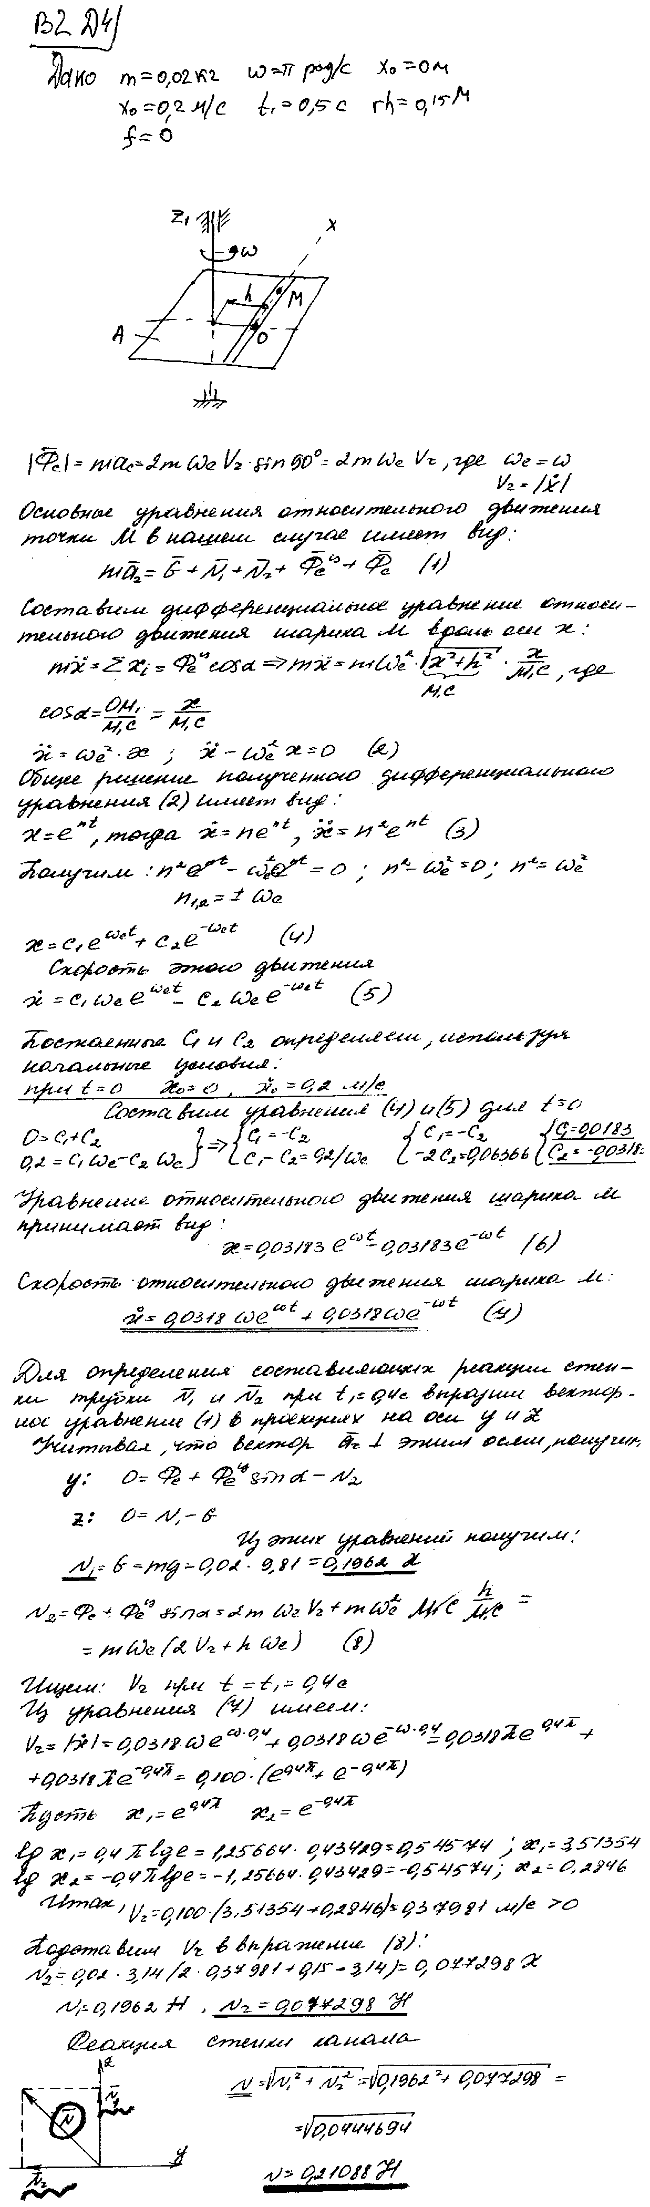 В2 Д4
Дано m=0,02кг ω=π рад/с x₀=0м
ẋ₀=0,2 м/с t₁=0,5 с rh=0,15м
f=0
Z₁
x
ω
h
M
A
O
|Ф̄c|=mac=2m ωe Vr·sin 90°=2m ωe Vr, где ωe=ω
Vr=|ẋ|
Основные уравнения относительного движения
точки М в нашем случае имеет вид:
mār=Ḡ+N̄₁+N̄₂+Ф̄eᵘ+Ф̄c (1)
Составим дифференциальное уравнение относи-
тельного движения шарика М вдоль оси x:
mẍ=Σxᵢ=Фeᵘcosα⇒mẍ=mωe²·√(x²+h²)·x/M₁C, где
M₁C
cosα=OM₁/M₁C=x/M₁C
ẍ=ωe²·x ; ẍ-ωe²x=0 (2)
Общее решение полученного дифференциального
уравнения (2) имеет вид:
x=eⁿᵗ, тогда ẋ=neⁿᵗ, ẍ=n²eⁿᵗ (3)
Получим: n²eⁿᵗ-ωe²eⁿᵗ=0 ; n²-ωe²=0; n²=ωe²
n₁,₂=± ωe
x=C₁e^ωet+C₂e^-ωet (4)
Скорость этого движения
ẋ=C₁ωe e^ωet-C₂ωe e^-ωet (5)
Постоянные C₁ и C₂ определяем, используя
начальные условия:
при t=0 x₀=0, ẋ₀=0,2 м/с
Составим уравнения (4) и (5) для t=0
0=C₁+C₂ } ⇒ { C₁=-C₂ { C₁=-C₂ { C₁=0,0183
0,2=C₁ωe-C₂ωe } { C₁-C₂=0,2/ωe { -2C₂=0,06366 { C₂=-0,0318
Уравнение относительного движения шарика М
принимает вид:
x=0,03183e^ωt-0,03183e^-ωt (6)
Скорость относительного движения шарика М:
ẋ=0,0318ωe^ωt+0,0318ωe^-ωt (7)
Для определения составляющих реакции стен-
ки трубки N̄₁ и N̄₂ при t₁=0,4с выразим вектор-
ное уравнение (1) в проекциях на оси y и z
Учитывая, что вектор ār⊥ этим осям, получим
y: 0=Фc+Фeᵘsinα-N₂
z: 0=N₁-G
Из этих уравнений получим:
N₁=G=mg=0,02·9,81=0,1962 Н
N₂=Фc+Фeᵘsinα=2mωeVr+mωe²M₁C h/M₁C=
=mωe(2Vr+hωe) (8)
Ищем: Vr при t=t₁=0,4с
Из уравнения (7) имеем:
Vr=|ẋ|=0,0318ωe^ω·0,4+0,0318ωe^-ω·0,4=0,0318πe^0,4π+
+0,0318πe^-0,4π=0,100·(e^0,4π+e^-0,4π)
Пусть x₁=e^0,4π x₂=e^-0,4π
lg x₁=0,4πlge=1,25664·0,43429=0,54574 ; x₁=3,51354
lg x₂=-0,4πlge=-1,25664·0,43429=-0,54574; x₂=0,2846
Итак, Vr=0,100·(3,51354+0,2846)=0,37981 м/с >0
Подставим Vr в выражение (8):
N₂=0,02·3,14(2·0,37981+0,15·3,14)=0,077298 Н
N₁=0,1962 Н, N₂=0,077298 Н
Реакция стенки канала
z
N̄₁
N̄
y
N̄₂
N=√(N₁²+N₂²)=√(0,1962²+0,077298)=
=√0,0444694
N=0,21088 Н